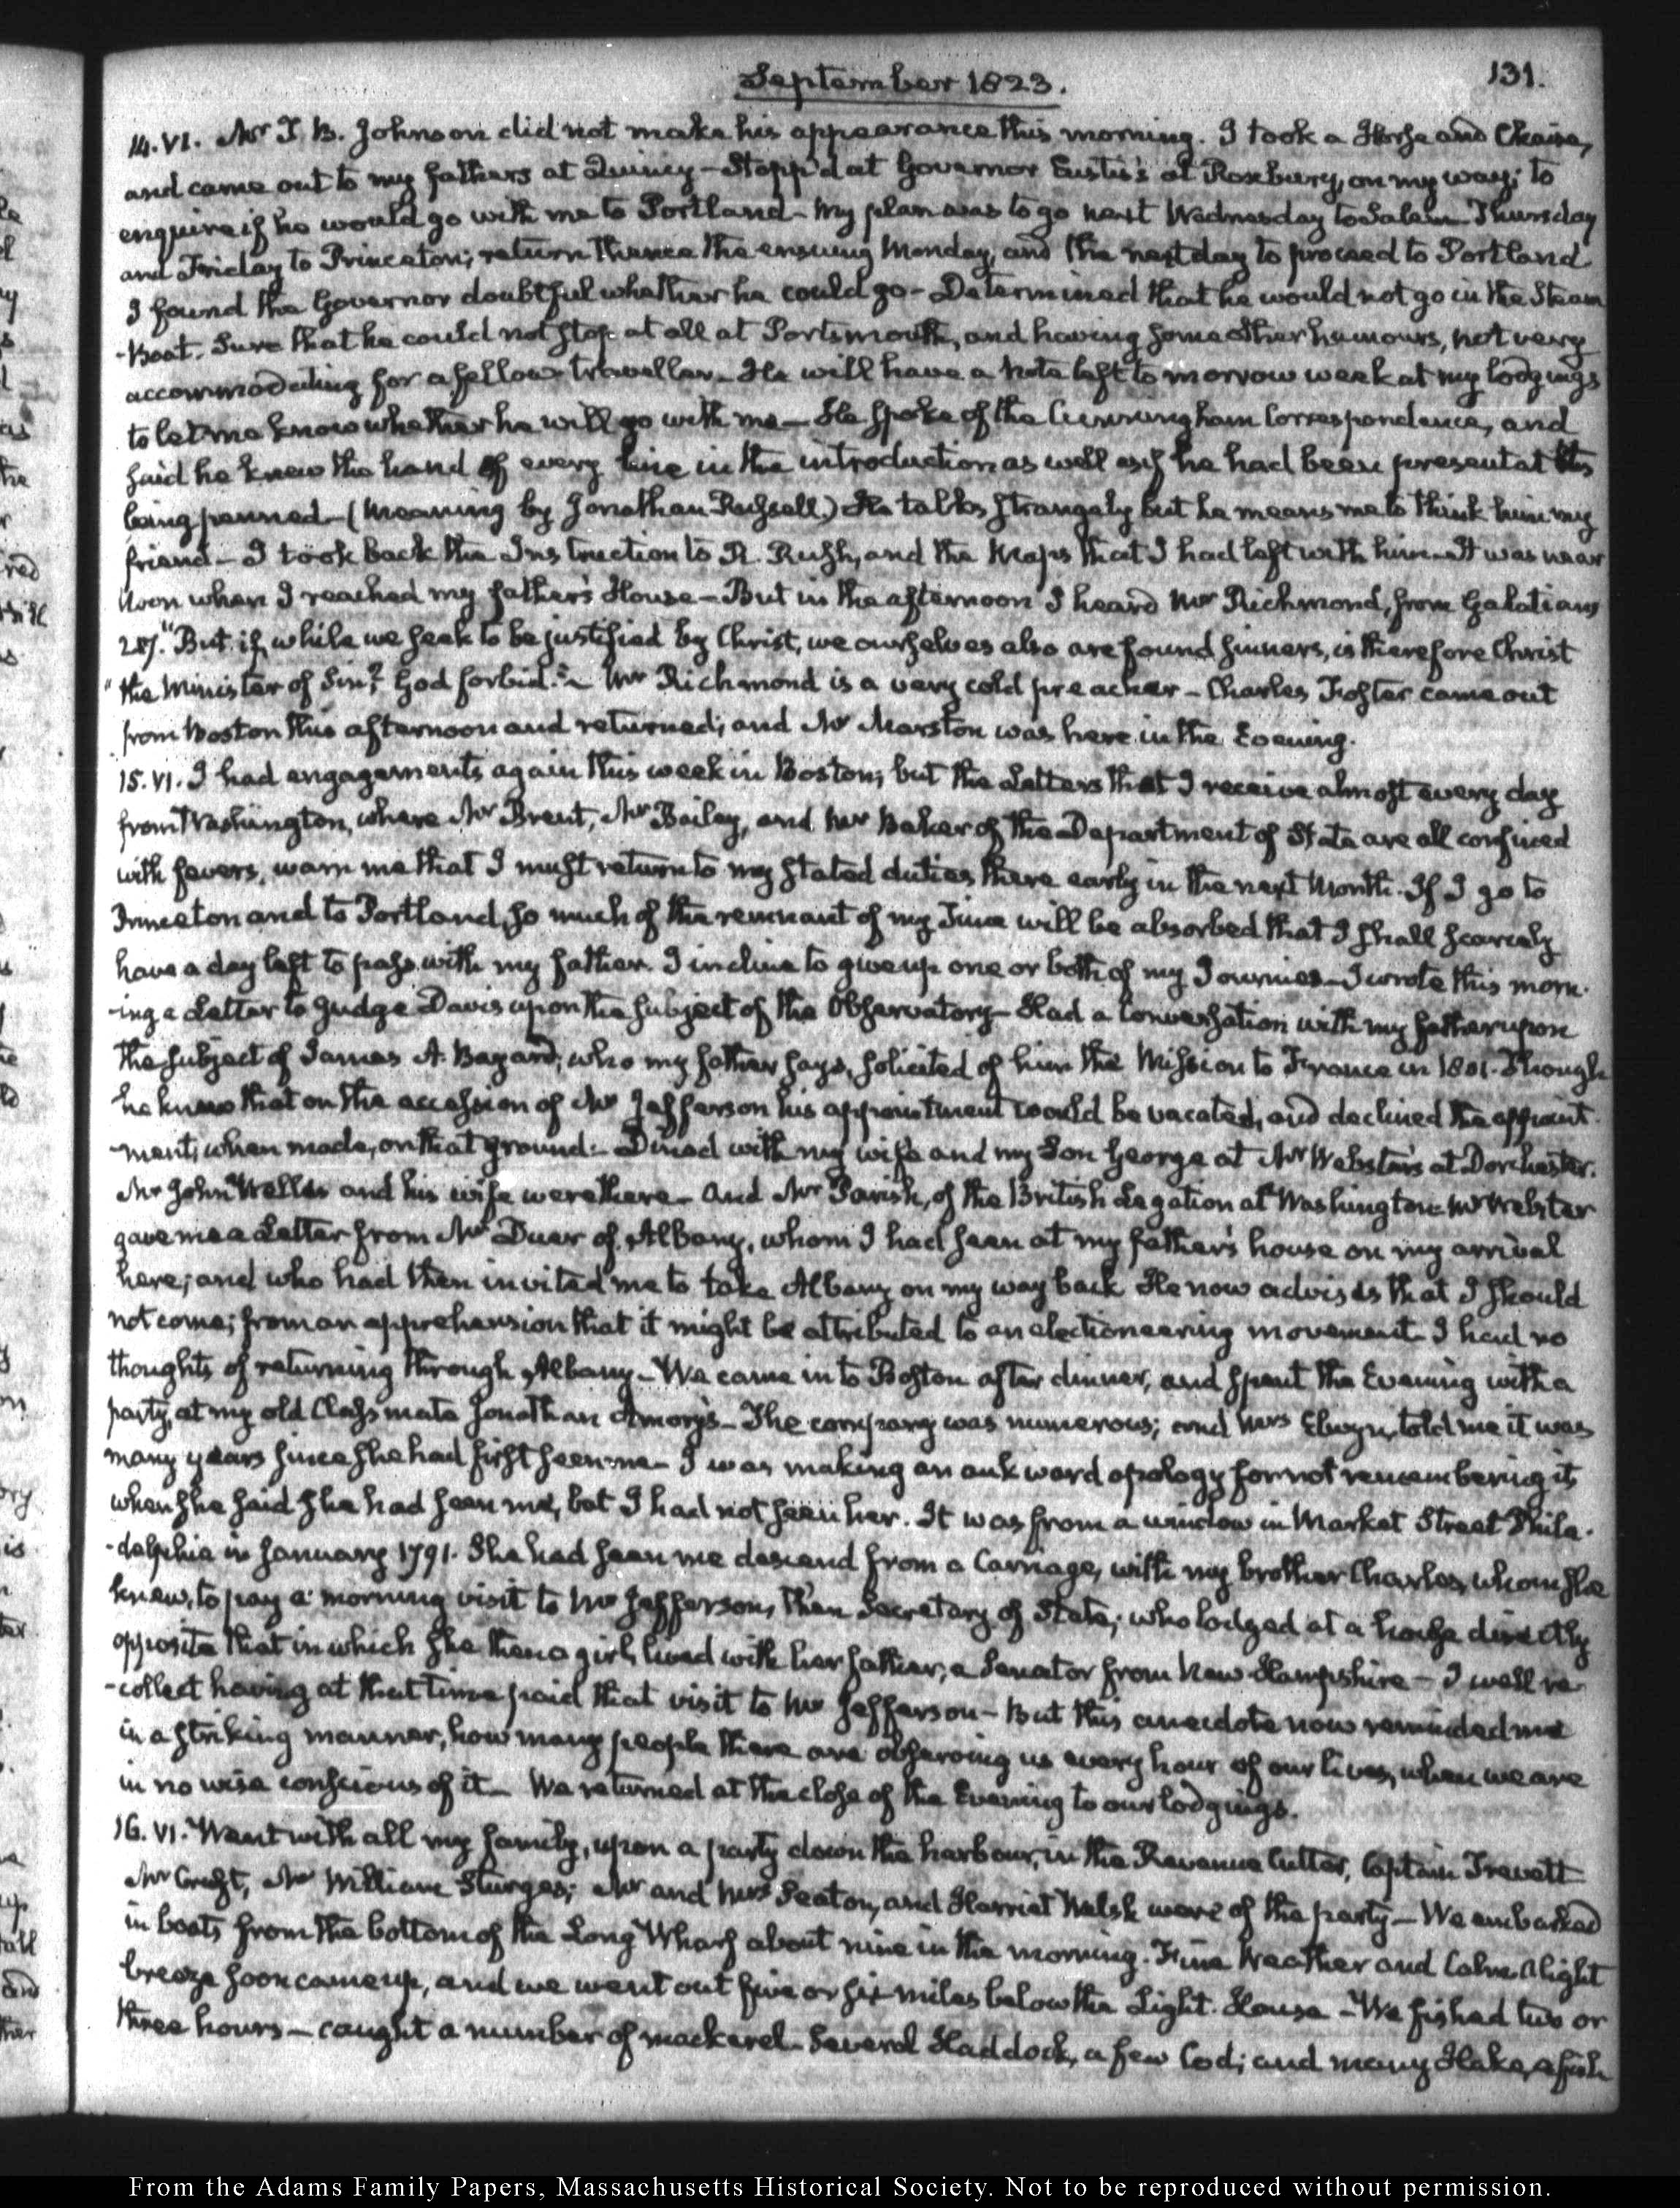 September 1823.
131.
14. VI. Mr J. B. Johnson did not make his appearance this morning. I took a Horse and Chaise,
and came out to my fathers at Quincy — Stopp'd at Governor Eustis's at Roxbury, on my way; to
enquire if he would go with me to Portland — My plan was to go next Wednesday to Salem Thursday
and Friday to Princeton; return thence the ensuing Monday, and the next day to proceed to Portland
I found the Governor doubtful whether he could go — Determined that he would not go in the Steam
-Boat. Sure that he could not stop at all at Portsmouth, and having some other humours, not very
accommodating for a fellow traveller — He will have a Note left to morrow week at my lodgings
to let me know whether he will go with me — He spoke of the Cunningham Correspondence, and
said he knew the hand of every line in the introduction as well as if he had been present at its
being penned — (Meaning by Jonathan Russell.) He talks strangely but he means me to think him my
friend — I took back the Instruction to R. Rush, and the Maps that I had left with him — It was near
Noon when I reached my father's House — But in the afternoon I heard Mr Richmond, from Galatians
2.17. "But if, while we seek to be justified by Christ, we ourselves also are found sinners, is therefore Christ
"the Minister of Sin? God forbid." — Mr Richmond is a very cold preacher — Charles Foster came out
from Boston this afternoon and returned; and Mr Marston was here in the Evening.
15. VI. I had engagements again this week in Boston; but the Letters that I receive almost every day
from Washington, where Mr Brent, Mr Bailey, and Mr Baker of the Department of State are all confined
with fevers, warn me that I must return to my stated duties there early in the next Month. If I go to
Princeton and to Portland, so much of the remnant of my Time will be absorbed that I shall scarcely
have a day left to pass with my father. I incline to give up one or both of my Journies — I wrote this morn-
-ing a Letter to Judge Davis upon the subject of the Observatory — Had a Conversation with my father upon
the subject of James A. Bayard; who my father says, solicited of him the Mission to France in 1801. Though
he knew that on the accession of Mr Jefferson his appointment would be vacated, and declined the appoint-
-ment, when made, on that ground — Dined with my wife and my Son George at Mr Webster's at Dorchester.
Mr John Welles and his wife were there — And Mr Parish, of the British Legation at Washington — Mr Webster
gave me a Letter from Mr Duer of Albany, whom I had seen at my father's house on my arrival
here; and who had then invited me to take Albany on my way back He now advises that I should
not come; from an apprehension that it might be attributed to an electioneering movement — I had no
thoughts of returning through Albany — We came in to Boston after dinner, and spent the Evening with a
party, at my old Classmate Jonathan Amory's — The company was numerous; and Mrs Elwyn, told me it was
many years since she had first seen me — I was making an aukward apology for not remembering it,
when she said she had seen me, but I had not seen her. It was from a window in Market Street Phila-
-delphia in January 1791. She had seen me descend from a Carriage, with my brother Charles, whom she
knew, to pay a morning visit to Mr Jefferson, then Secretary of State; who lodged at a house directly
opposite that in which she then a girl, lived with her father; a Senator from New-Hampshire — I well re-
-collect having at that time paid that visit to Mr Jefferson — But this anecdote now reminded me
in a striking manner, how many people there are observing us every hour of our lives, when we are
in no wise conscious of it — We returned at the close of the Evening to our lodgings.
16. VI. Went with all my family, upon a party down the harbour, in the Revenue Cutter, Captain Trevett
Mr William Sturges; Mr and Mrs Seaton, and Harriet Welsh were of the party — We embarked
in boats from the bottom of the Long Wharf about nine in the morning. Fine Weather and Calm A light
breeze soon came up, and we went out five or six miles below the Light-House — We fished two or
three hours — caught a number of mackerel — Several Haddock, a few Cod; and many Hake, a fish
From the Adams Family Papers, Massachusetts Historical Society. Not to be reproduced without permission.